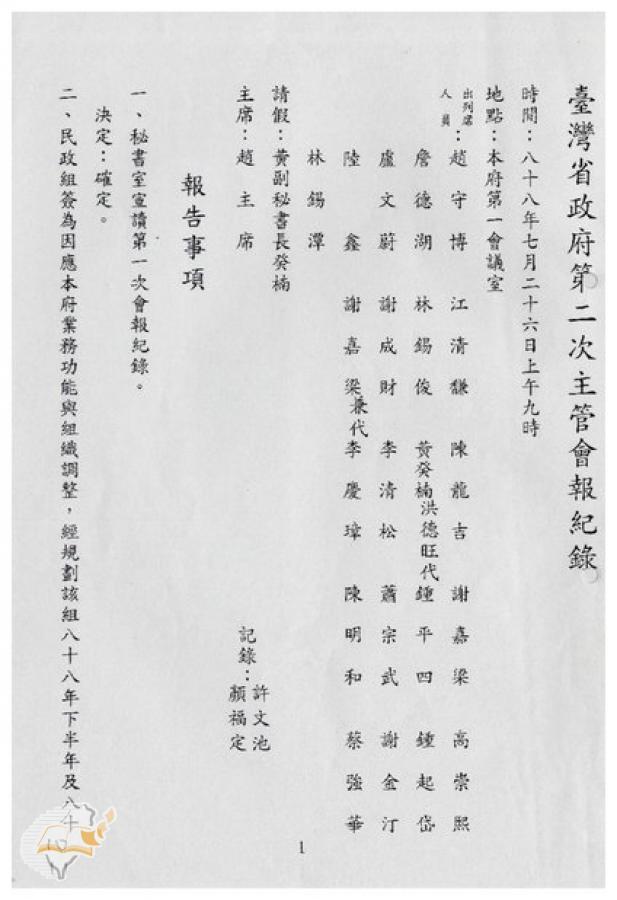 臺灣省政府第二次主管會報紀錄
時間：八十八年七月二十六日上午九時
地點：本府第一會議室
出列席人員：趙守博 江清馦 陳龍吉 謝嘉梁 高崇熙
詹德湖 林錫俊 黃癸楠洪德旺代 鍾平四 鍾起岱
盧文蔚 謝成財 李清松 蕭宗武 謝金汀
陸鑫 謝嘉梁兼代 李慶璋 陳明和 蔡強華
林錫潭
請假：黃副秘書長癸楠
主席：趙主席 記錄：許文池 顏福定
報告事項
一、秘書室宣讀第一次會報紀錄。
決定：確定。
二、民政組簽為因應本府業務功能與組織調整，經規劃該組八十八年下半年及八十
1